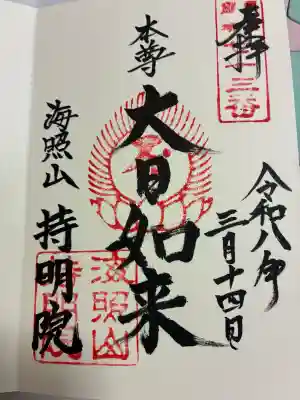 奉拝
三番
令和八年
三月十四日
本尊
大日如来
海照山
持明院
海照山